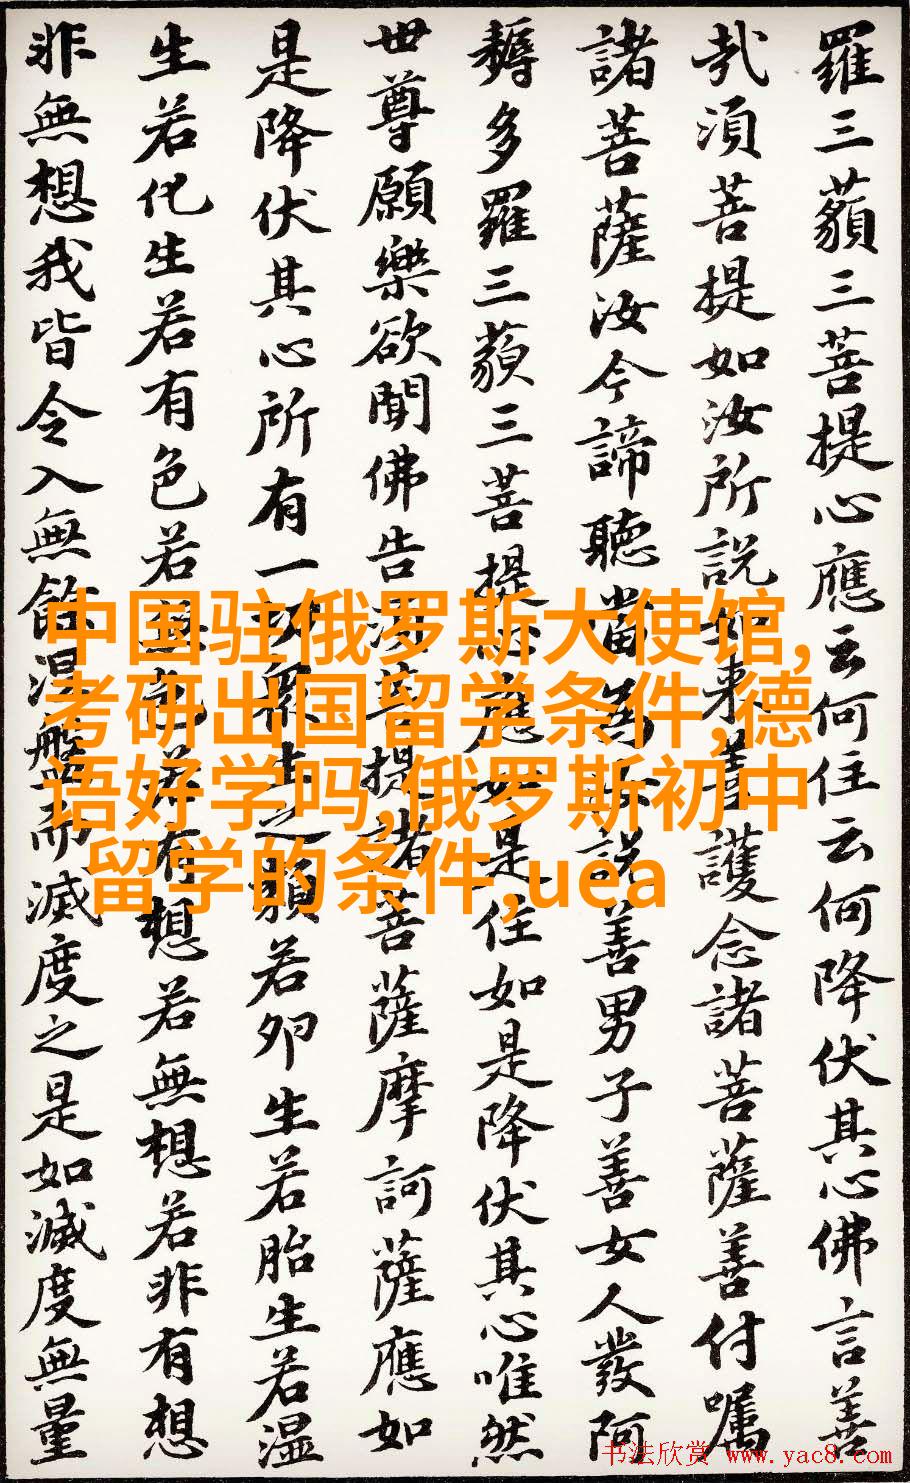 羅三藐三菩提心應云何住云何降伏其心佛言善
哉須菩提如汝所說如来善護念諸菩薩善付嘱
諸菩薩汝今諦聽當為汝說善男子善女人發阿
耨多羅三藐三菩提心應如是住如是降伏其心唯然
世尊願樂欲聞佛告須菩提諸菩薩摩訶薩應如
是降伏其心所有一切眾生之類若卵生若胎生若湿
生若化生若有色若無色若有想若無想若非有想
非無想我皆令入無餘涅盤而滅度之是如滅度無量
中国驻俄罗斯大使馆,
考研出国留学条件,德
语好学吗,俄罗斯初中
留学的条件,uea
书法欣赏 www.yac8.com